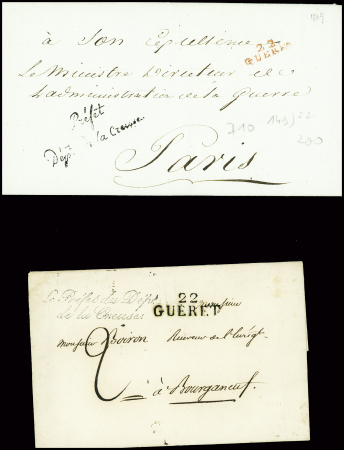 à Son Excellence
Le Ministre Directeur de
L'administration de la Guerre
22
GUERET
Préfet
Dép. la Creuse
710
200
Paris
Le Préfet du Dépt
de la Creuse
22
GUERET
Monsieur
Monsieur Boiron Receveur de l'Enregt.
2
à Bourganeuf.